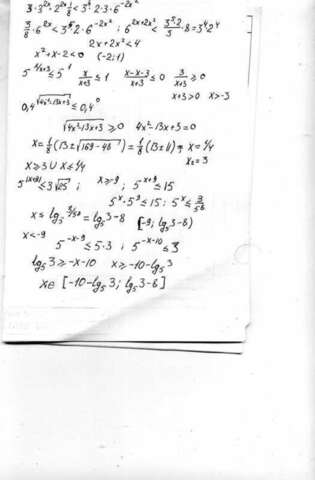 3·3^{2x}·2^{2x}·1/8 < 3^4·2·3·6^{-2x^2}
3/8·6^{2x} < 3^5·2·6^{-2x^2} ; 6^{2x+2x^2} < 3^5·2/3·8 = 3^4 2^4
2x+2x^2 < 4
x^2+x-2<0 (-2;1)
5^{x/x+3} ≤ 5^1 x/x+3 ≤ 1 x-x-3/x+3 ≤ 0 3/x+3 ≥ 0
x+3>0 x>-3
0,4^{√4x^2-13x+3} ≤ 0,4^0
√4x^2-13x+3 ≥ 0 4x^2-13x+3=0
x = 1/8(13±√169-48) = 1/8(13±11) x=1/4
x_2=3
x≥3 ∪ x≤1/4
5^{|x+9|} ≤ 3√25 ; x≥-9 ; 5^{x+9} ≤ 15
5^x·5^9 ≤ 15 ; 5^x ≤ 3/5^8
x ≤ lg_5 3/5^8 = lg_5 3-8 [-9; lg_5 3-8)
x<-9 5^{-x-9} ≤ 5·3 ; 5^{-x-10} ≤ 3
lg_5 3 ≥ -x-10 x ≥ -10-lg_5 3
x∈ [-10-lg_5 3; lg_5 3-8]